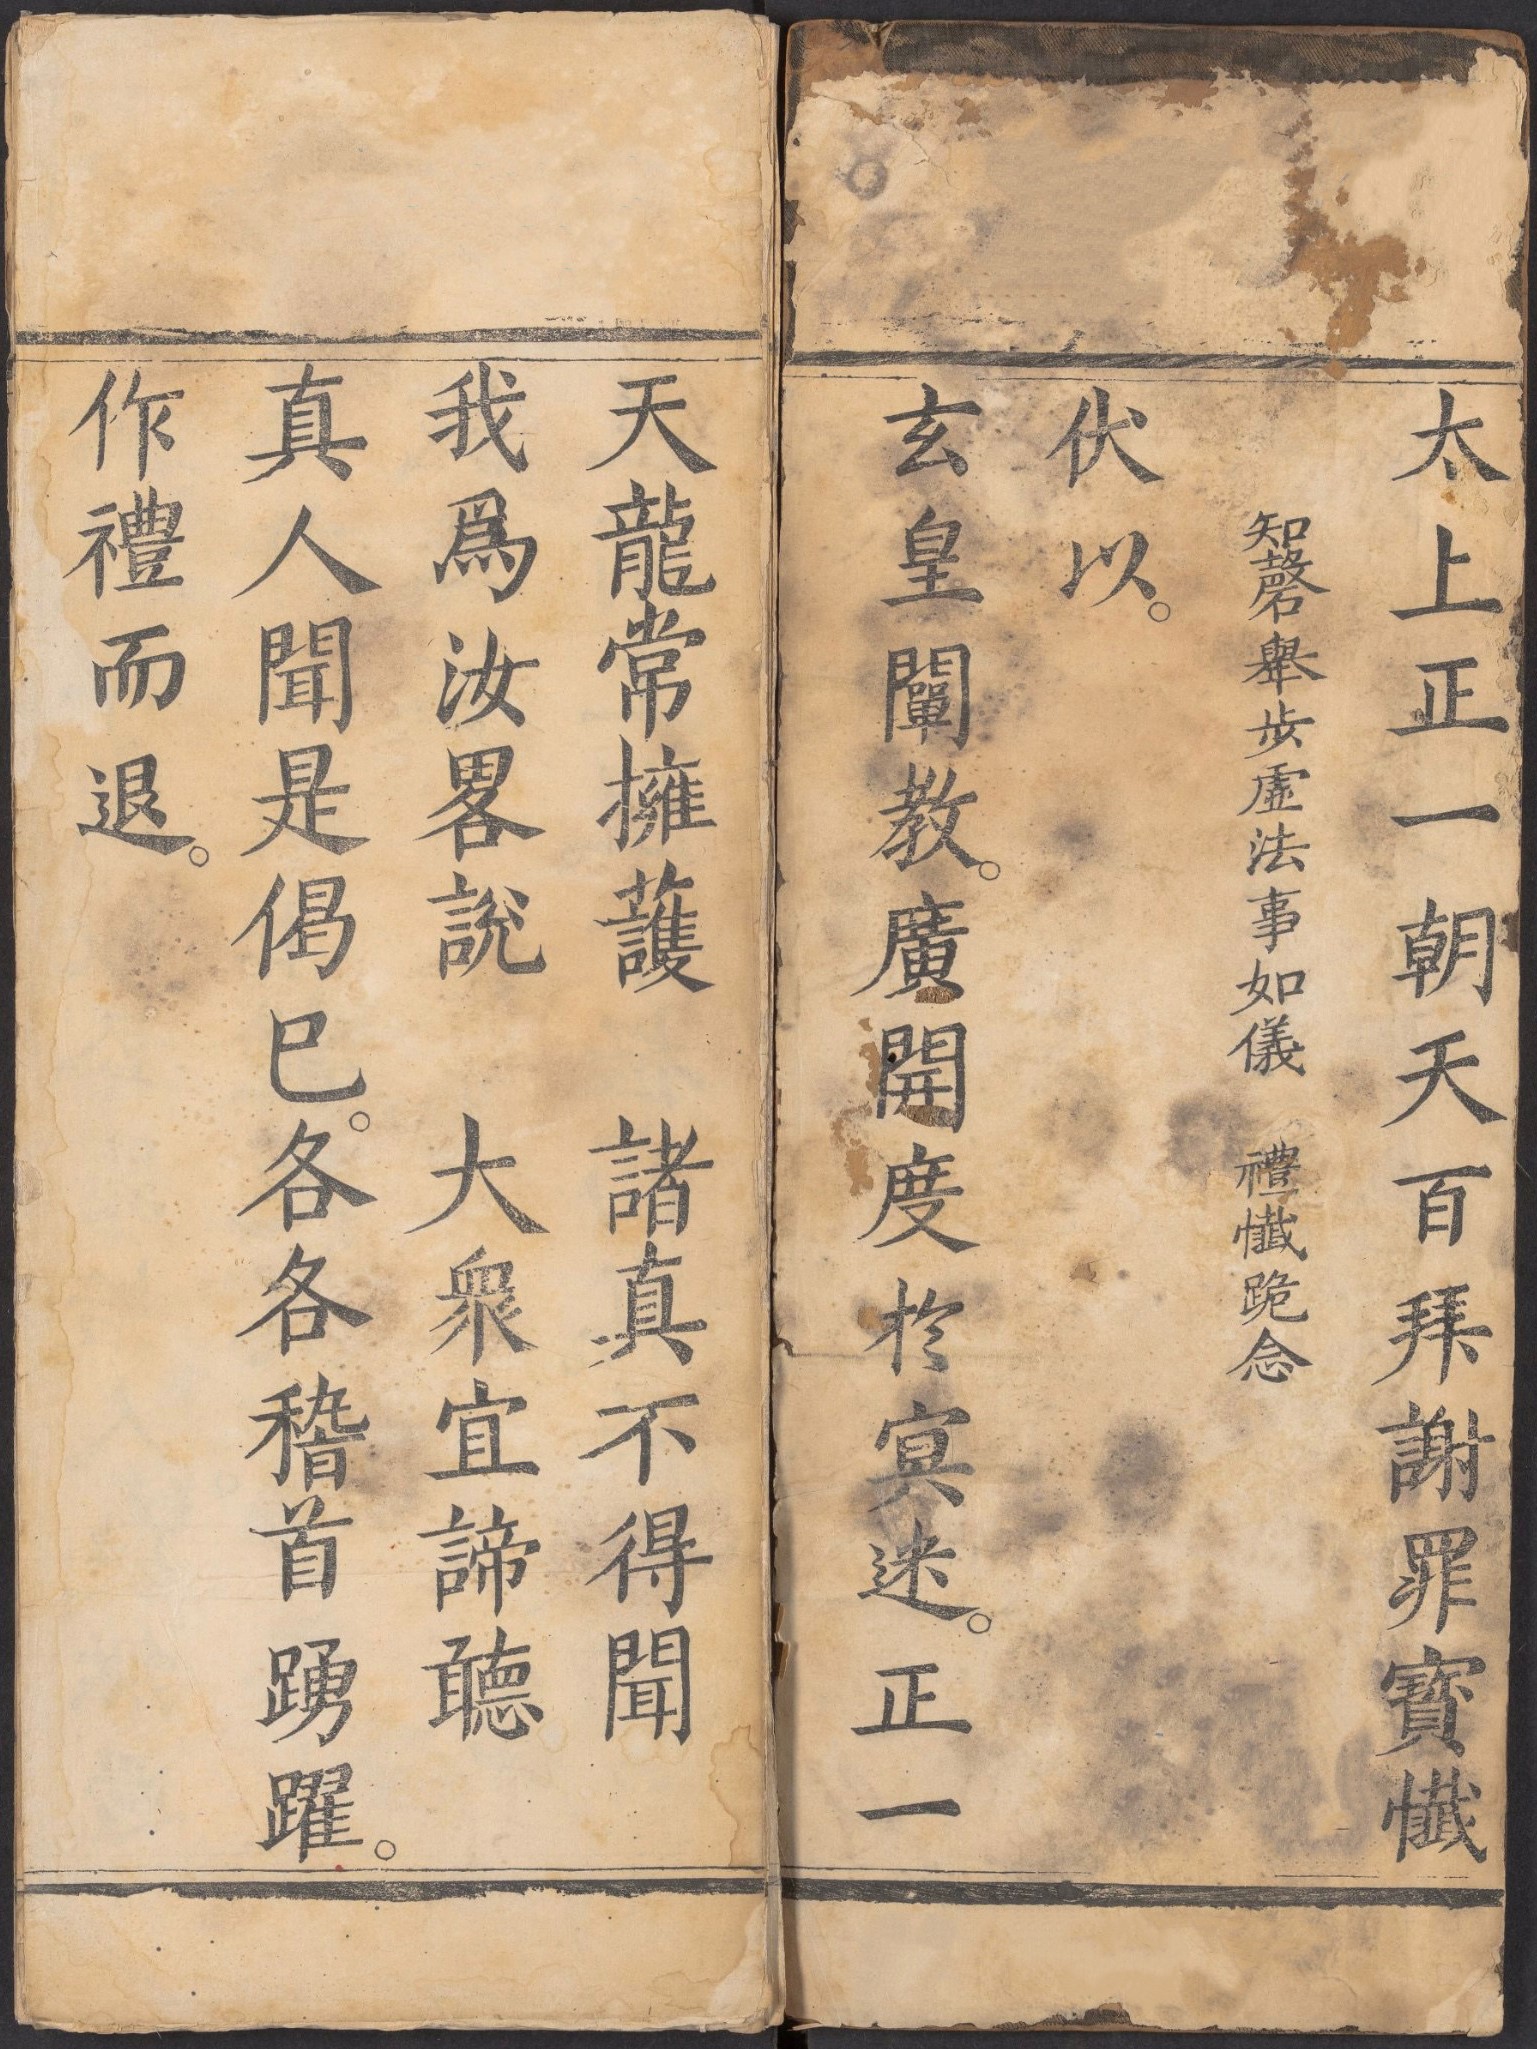 太上正一朝天百拜謝罪寳懺
知磬舉步虛法事如儀　禮懺跪念
伏以。
玄皇闡教。廣開度於冥迷。正一
天龍常擁護　諸真不得聞
我爲汝畧說　大衆宜諦聽
真人聞是偈巳。各各稽首踴躍。
作禮而退。